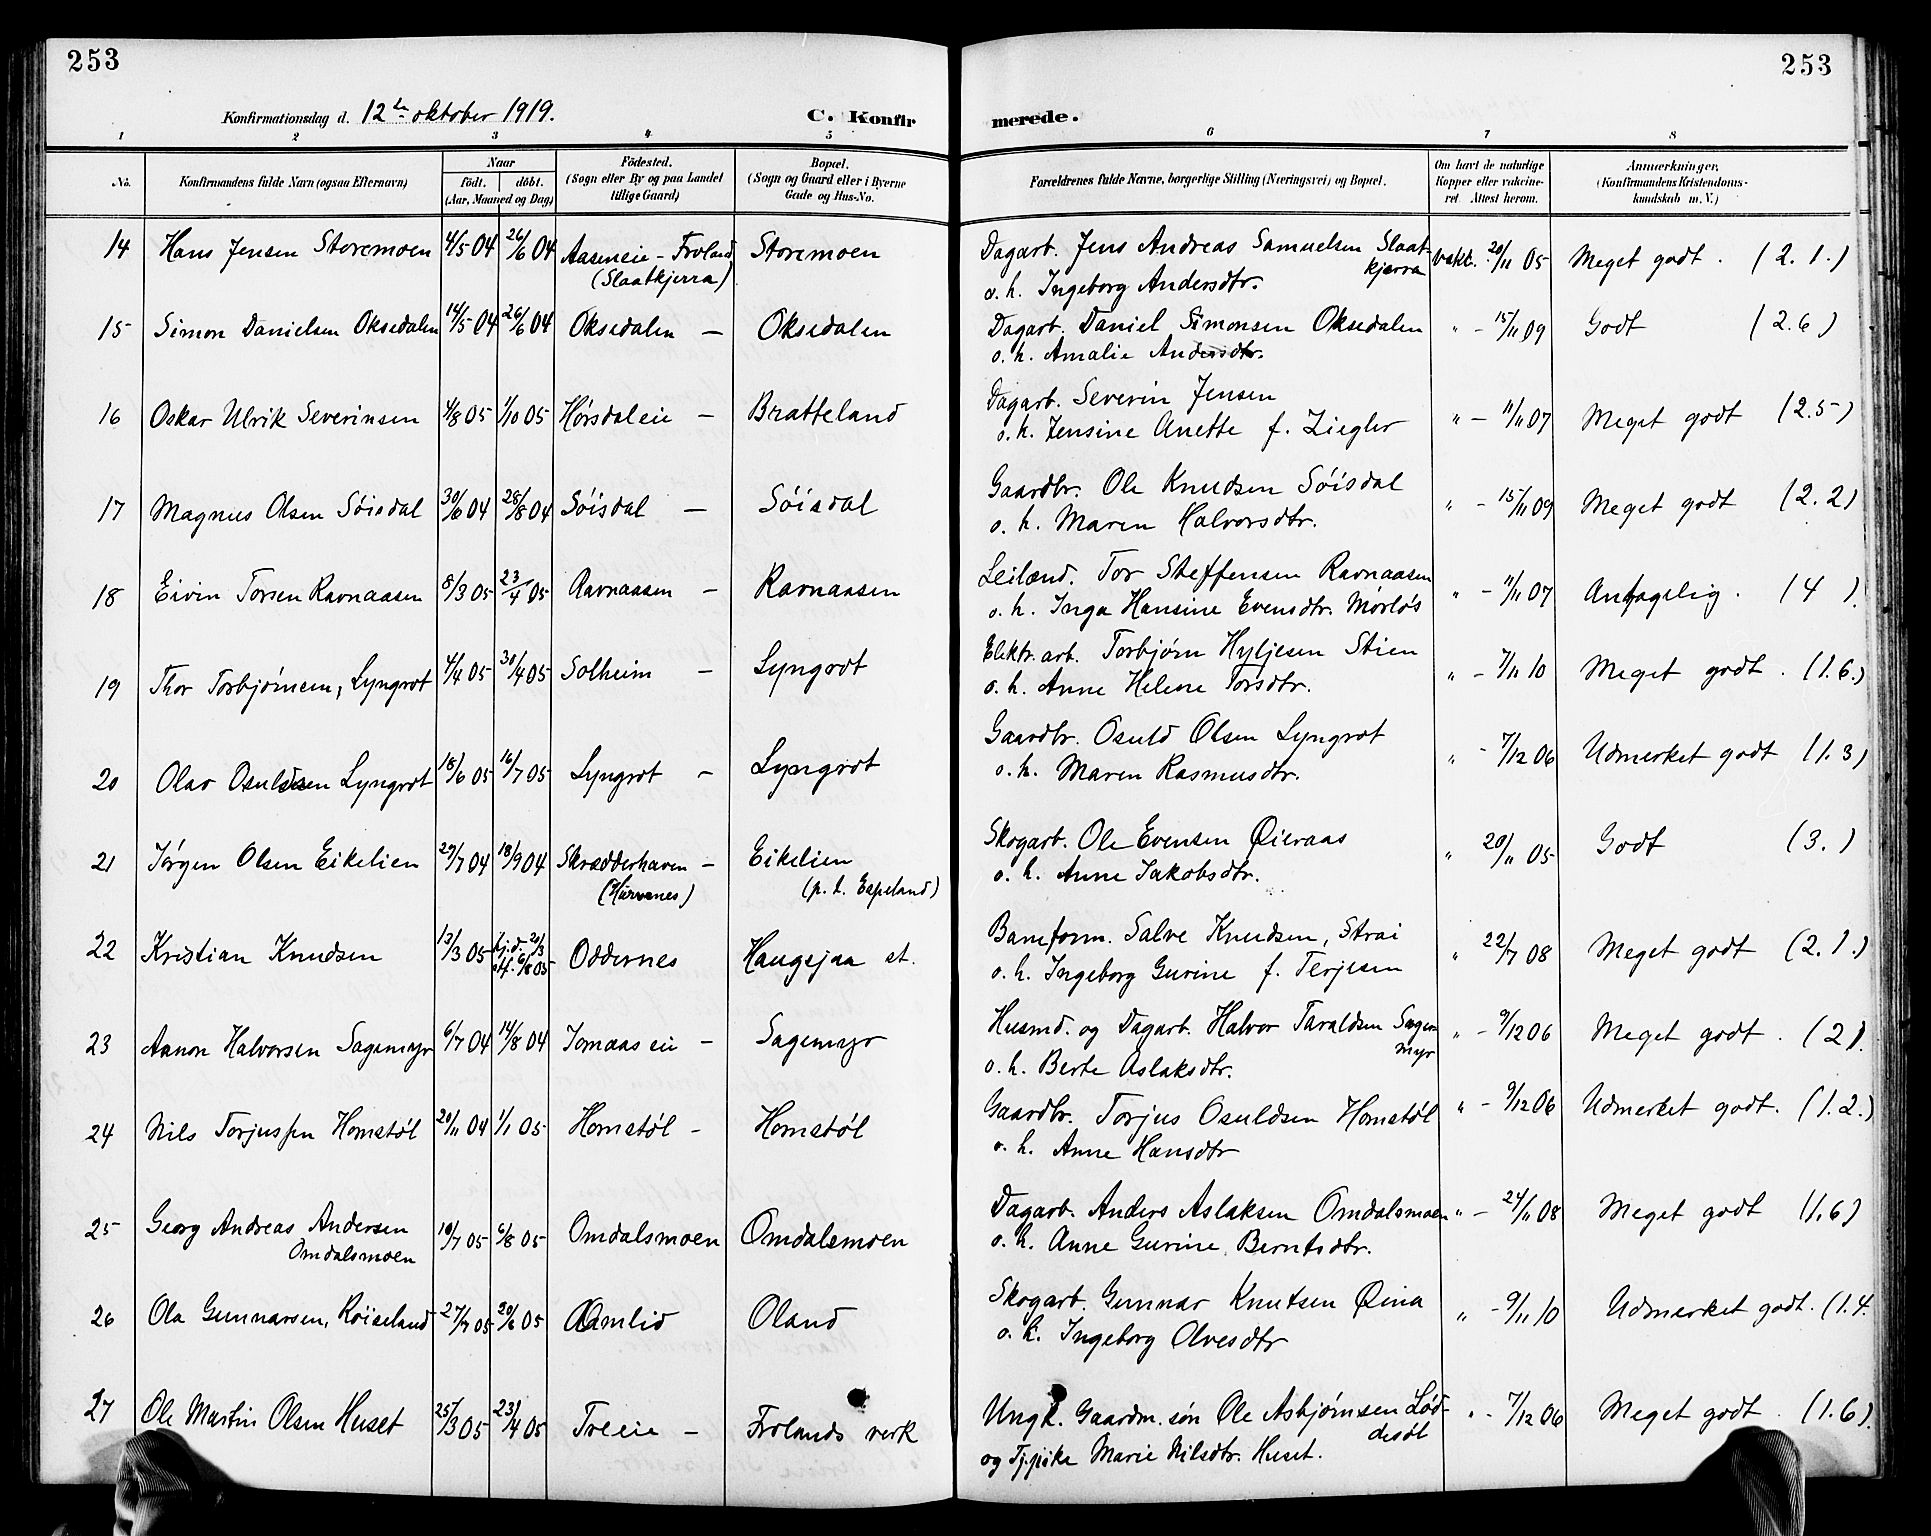 253
253
Konfirmationsdag d. 12te oktober 1919.
C. Konfir
merede.
1 2 3 4 5 6 7 8
No.
Konfirmandens fulde Navn (ogsaa Efternavn)
Naar
födt. döbt.
(Aar, Maaned og Dag)
Födested.
(Sogn eller By og paa Landet
tillige Gaard)
Bopæl.
(Sogn og Gaard eller i Byerne
Gade og Hus-No.
Forældrenes fulde Navne, borgerlige Stilling (Næringsvei) og Bopæl.
Om havt de naturlige
Kopper eller vakcine-
ret Attest herom.
Anmærkninger,
(Konfirmandens Kristendoms-
kundskab m. V.)
14 Hans Jensen Storemoen 4/5 04 26/6 04 Aasmeie - Froland Storemoen Dagarb. Jens Andreas Samuelsen Slaat- vakc. 20/11 05 Meget godt. (2.1.)
(Slaatkjerra) kjerra
o. h. Ingeborg Andersdtr.
15 Simon Danielsen Oksedalen 14/5 04 26/6 04 Oksedalen — Oksedalen Dagarb. Daniel Simonsen Oksedalen " - 15/11 09 Godt (2.6)
o. h. Amalie Andersdtr.
16 Oskar Ulrik Severinsen 4/8 05 1/10 05 Hørsdaleie — Bratteland Dagarb. Severin Jensen " - 11/11 07 Meget godt (2.5)
o. h. Jensine Anette f. Ziegler
17 Magnus Olsen Søisdal 30/6 04 28/8 04 Søisdal — Søisdal Gaardbr. Ole Knudsen Søisdal " - 15/11 09 Meget godt (2.2)
o. h. Maren Halvorsdtr.
18 Eivin Torsen Ravnaasen 8/3 05 23/4 05 Ravnaasen — Ravnaasen Leilænd. Tor Steffensen Ravnaasen " - 11/11 07 Antagelig. (4).
o. h. Inga Hansine Evensdtr. Mørløs
19 Thor Torbjørnsen, Lyngrot 4/4 05 30/4 05 Solheim — Lyngrot Elektr. arb. Torbjørn Hyljesen Stien " - 7/11 10 Meget godt. (1.6.)
o. h. Anne Helene Torsdtr.
20 Olav Osuldsen Lyngrot 18/6 05 16/7 05 Lyngrot — Lyngrot Gaardbr. Osuld Olsen Lyngrot " - 7/12 06 Udmerket godt (1.3)
o. h. Maren Rasmusdtr.
21 Jørgen Olsen Eikelien 29/7 04 18/9 04 Skrædderhaven — Eikelien Skogarb. Ole Evensen Øieraas " 20/11 05 Godt (3.)
(Hurvenes) (p. t. Espeland)
o. h. Anne Jakobsdtr.
22 Kristian Knudsen 13/3 05 hj.d. 20/3 Oddernes Haugsjaa st. Baneform. Salve Knudsen, Strai " 22/7 08 Meget godt (2.1.)
stf. 6/8 05
o. h. Ingeborg Gurine f. Terjesen
23 Aanon Halvorsen Sagemyr 6/7 04 14/8 04 Jomaas eie — Sagemyr Husmd. og Dagarb. Halvor Taraldsen Sage- " - 9/12 06 Meget godt. (2).
myr
o. h. Berte Aslaksdtr.
24 Nils Torjussen Homstøl 20/11 04 1/1 05 Homstøl - Homstøl Gaardbr. Torjus Osuldsen Homstøl " - 9/12 06 Udmerket godt. (1.2.)
o. h. Anne Hansdtr
25 Georg Andreas Andersen 19/7 05 6/8 05 Omdalsmoen Omdalsmoen Dagarb. Anders Aslaksen Omdalsmoen " - 24/11 08 Meget godt (1,6)
Omdalsmoen
o. h. Anne Gurine Berntsdtr.
26 Ola Gunnarsen, Røiseland 27/4 05 20/6 05 Aamlid Oland Skogarb. Gunnar Knutsen Øina " - 9/11 10 Udmerket godt. (1.4.
o. h. Ingeborg Olvesdtr
27 Ole Martin Olsen Huset 25/3 05 23/4 05 Treeie — Frolands verk Ungk. Gaardm. søn Ole Asbjørnsen Lød- " - 7/12 06 Meget godt. (1.6).
desøl
og Tj. pike Marie Nilsdtr. Huset.